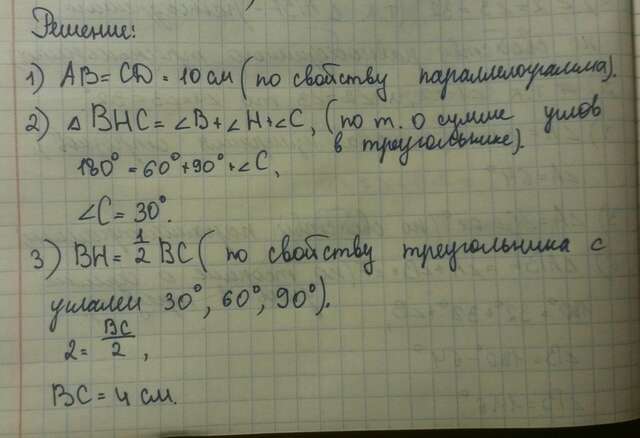 Решение:
1) AB = CD = 10 см (по свойству параллелограмма).
2) △ BHC = ∠B + ∠H + ∠C, (по т. о сумме углов
в треугольнике).
180° = 60° + 90° + ∠C,
∠C = 30°.
3) BH = 1/2 BC (по свойству треугольника с
углами 30°, 60°, 90°).
2 = BC/2,
BC = 4 см.